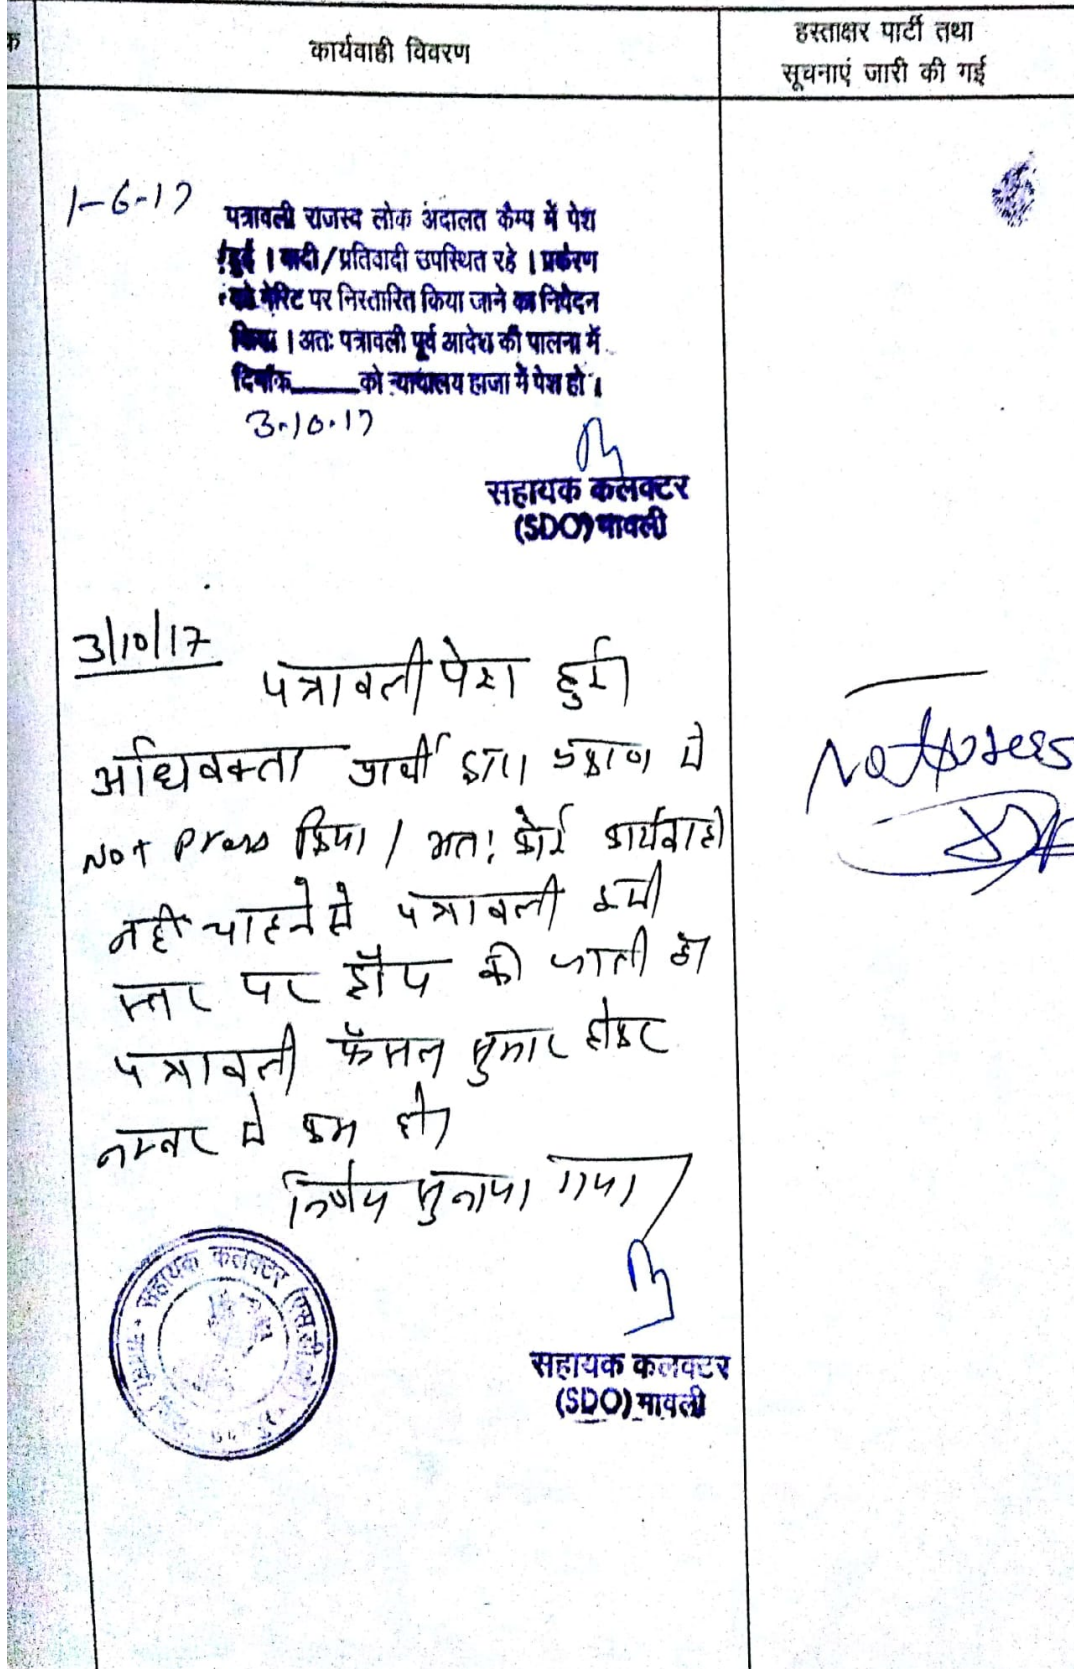 क
कार्यवाही विवरण
हस्ताक्षर पार्टी तथा
सूचनाएं जारी की गई
1-6-17
पत्रावली राजस्व लोक अदालत कैम्प में पेश
हुई । वादी/प्रतिवादी उपस्थित रहे । प्रकरण
को मेरिट पर निस्तारित किया जाने का निवेदन
किया । अतः पत्रावली पूर्व आदेश की पालना में
दिनांक_____को न्यायालय हाजा में पेश हो ।
3.10.17
सहायक कलक्टर
(SDO) मावली
3/10/17
पत्रावली पेश हुई।
अधिवक्ता प्रार्थी द्वारा प्रकरण मे
Not Press किया / अतः कोई कार्यवाही
नहीं चाहने से पत्रावली इसी
स्तर पर ड्रॉप की जाती है
पत्रावली फैसल सुमार होकर
नम्बर से कम हो।
निर्णय सुनाया गया
Not press
सहायक कलक्टर
सहायक कलक्टर
(SDO) मावली